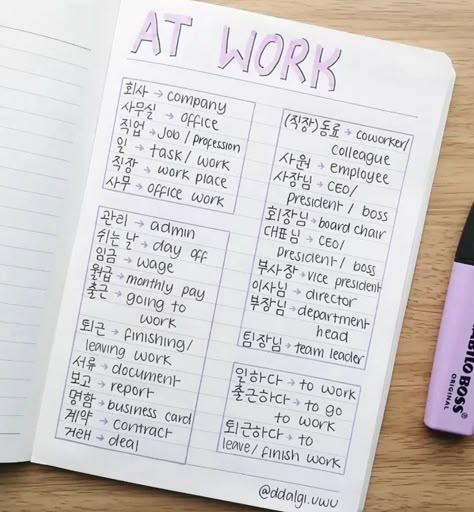 AT WORK
회사 → company
사무실 → office
직업 → job / profession
일 → task / work
직장 → work place
사무 → office work
관리 → admin
쉬는 날 → day off
임금 → wage
월급 → monthly pay
출근 → going to
work
퇴근 → finishing/
leaving work
서류 → document
보고 → report
명함 → business card
계약 → contract
거래 → deal
(직장)동료 → coworker/
colleague
사원 → employee
사장님 → CEO/
president / boss
회장님 → board chair
대표님 → CEO/
president / boss
부사장 → vice president
이사님 → director
부장님 → department
head
팀장님 → team leader
일하다 → to work
출근하다 → to go
to work
퇴근하다 → to
leave/finish work
@ddalgi.uwu
BOSS
ORIGINAL